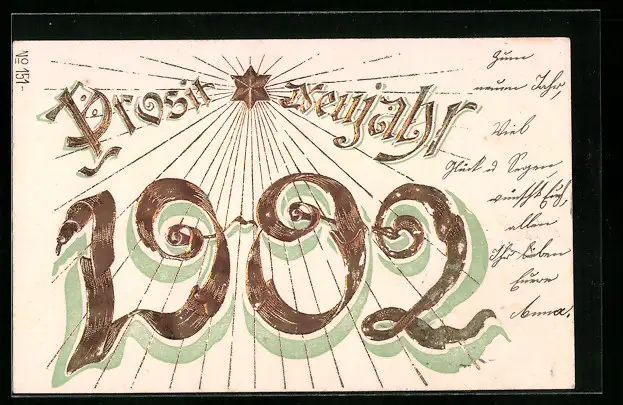 No 151-
Prosit Neujahr
1902
Zum
neuen Jahr,
Viel
Glück u Segen,
wünscht Euch
allen
Ihr Lieben
Euere
Anna.